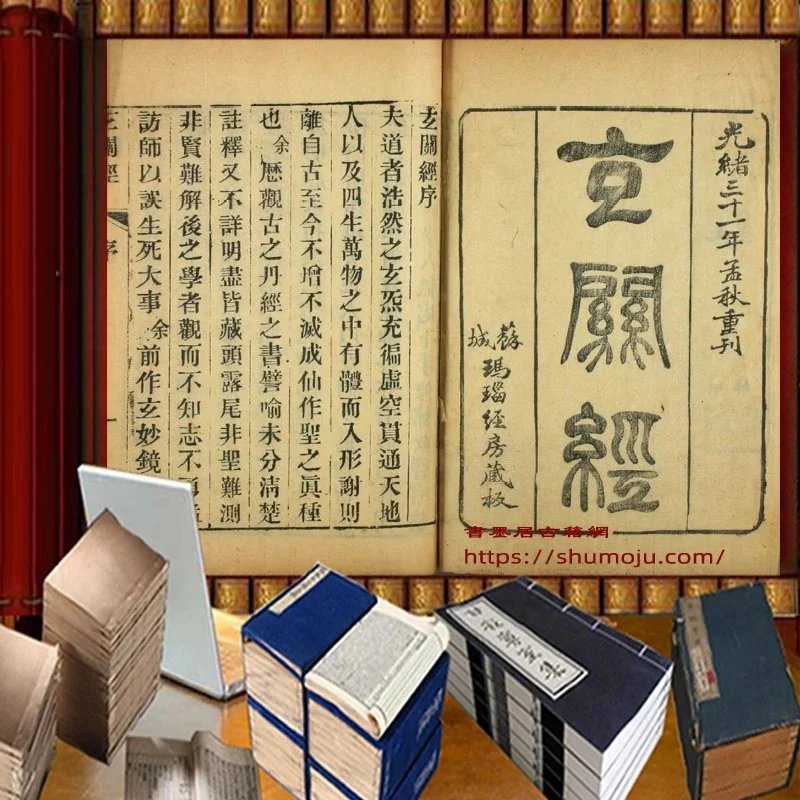 光緒三十一年孟秋重刊
玄關經
蘇城瑪瑙經房藏板
玄關經序
夫道者浩然之玄炁充徧虛空貫通天地
人以及四生萬物之中有體而入形謝則
離自古至今不增不滅成仙作聖之眞種
也余厯觀古之丹經之書譬喻未分清楚
註釋又不詳明盡皆藏頭露尾非聖難測
非賢難解後之學者觀而不知志不
訪師以誤生死大事余前作玄妙鏡
玄關經 序 一
書墨居古籍網
https://shumoju.com/